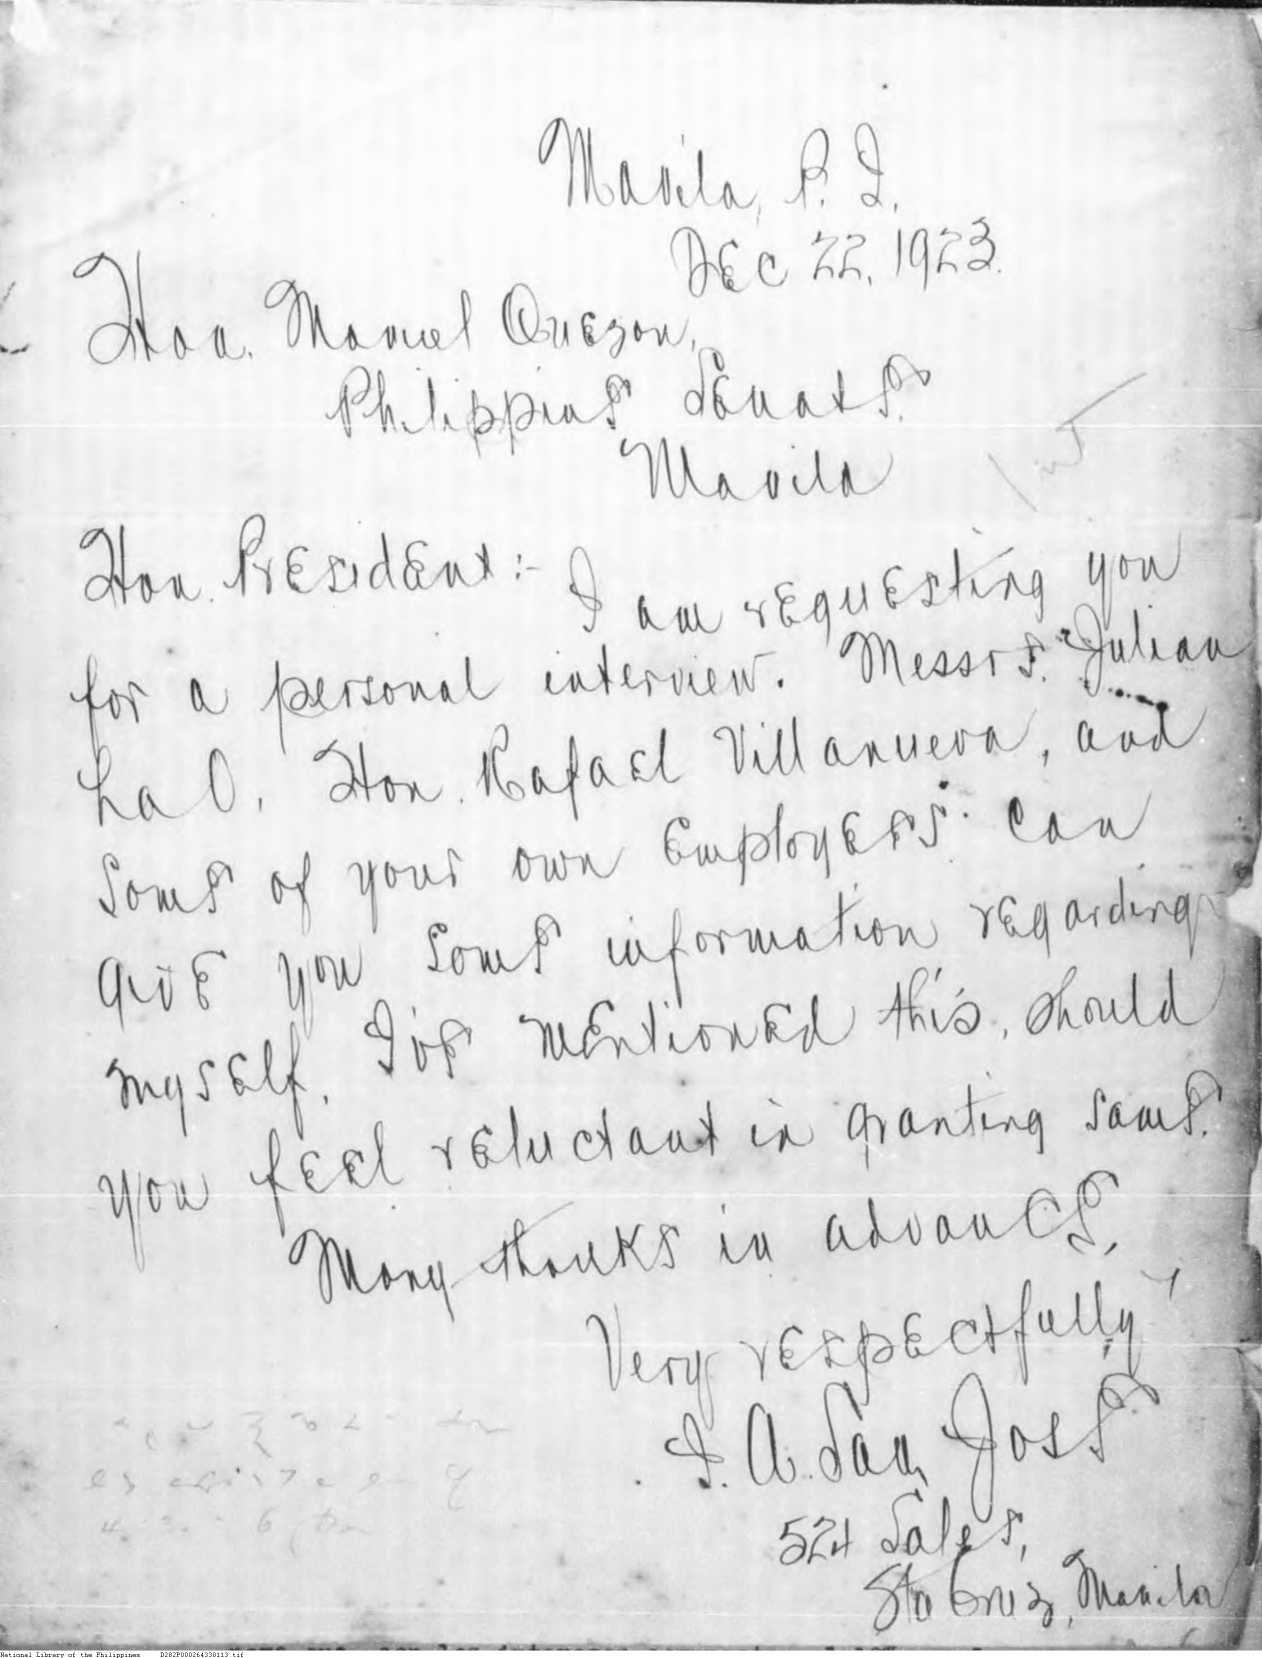 Manila, P. I.
Dec 22, 1923.
Hon. Manuel Quezon,
Philippine Senate.
Manila
Hon. President:-
I am requesting you
for a personal interview. Messrs. Julian
La O, Hon. Rafael Villanueva, and
some of your own employees can
give you some information regarding
myself. I've mentioned this, should
you feel reluctant in granting same.
Many thanks in advance,
Very respectfully,
I. A. San Jose
524 Sales,
Sta Cruz, Manila
National Library of the Philippines D282P000264330113.tif